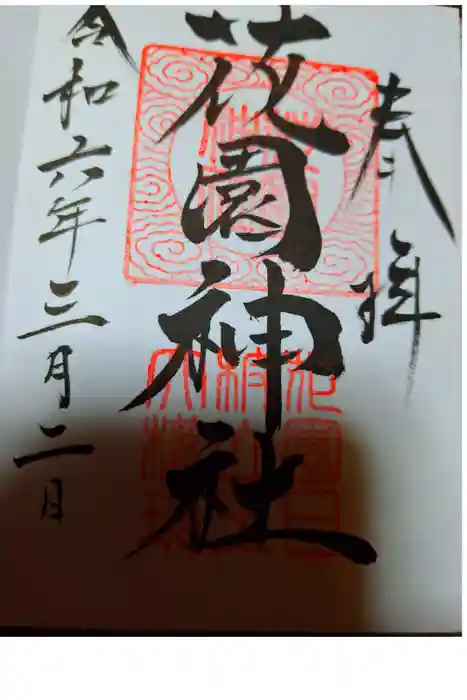 奉拝
花園神社
令和六年三月二日